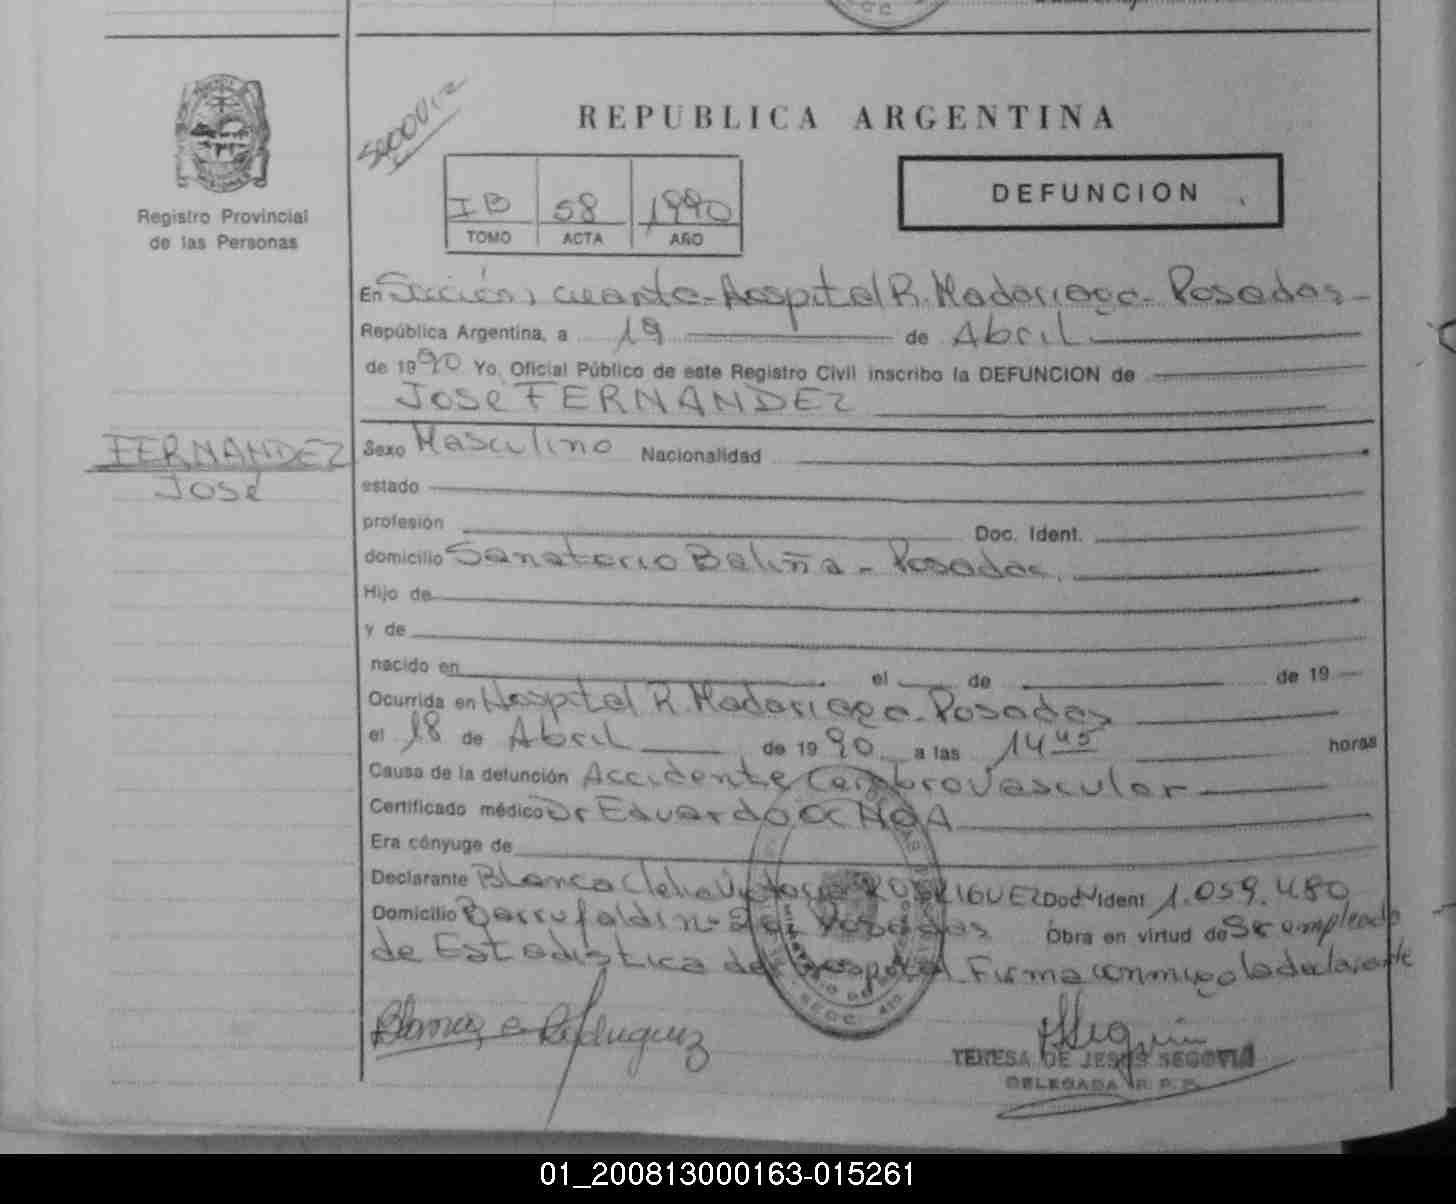 REPUBLICA ARGENTINA
DEFUNCION
Registro Provincial
de las Personas
IB 58 1990
TOMO ACTA AÑO
En Sección, cuarta - Hospital R. Madariaga - Posadas -
República Argentina, a 19 de Abril
de 1990 Yo, Oficial Público de este Registro Civil inscribo la DEFUNCION de
Jose FERNANDEZ
FERNANDEZ
José
Sexo Masculino Nacionalidad
estado
profesión Doc. Ident.
domicilio Sanatorio Baliña - Posadas.
Hijo de
y de
nacido en el de de 19
Ocurrida en Hospital R. Madariaga - Posadas
el 18 de Abril de 1990 a las 14 45 horas
Causa de la defunción Accidente Cerebrovascular
Certificado médico Dr Eduardo OCHOA
Era cónyuge de
Declarante Blanca Clelia Victoria RODRIGUEZ Doc Ident 1.059.480
Domicilio Posadas Obra en virtud de Ser empleada
de Estadística del Hospital. Firma conmigo la declarante
TERESA DE JESUS SEGOVIA
DELEGADA R. P. P.
01_200813000163-015261